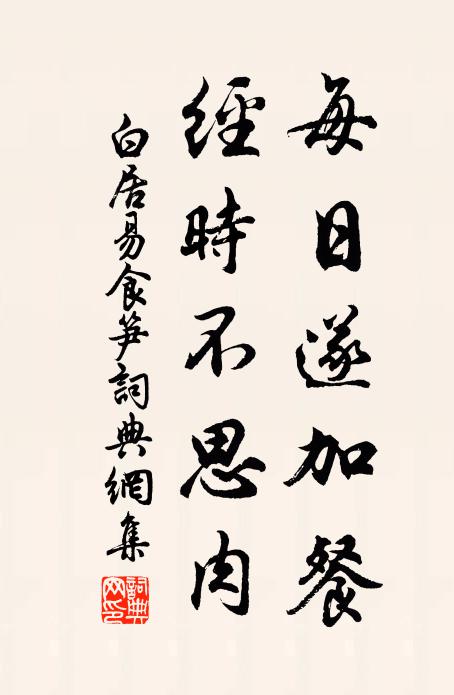 每日遂加餐
經時不思肉
白居易食笋詞典網集
詞典网印